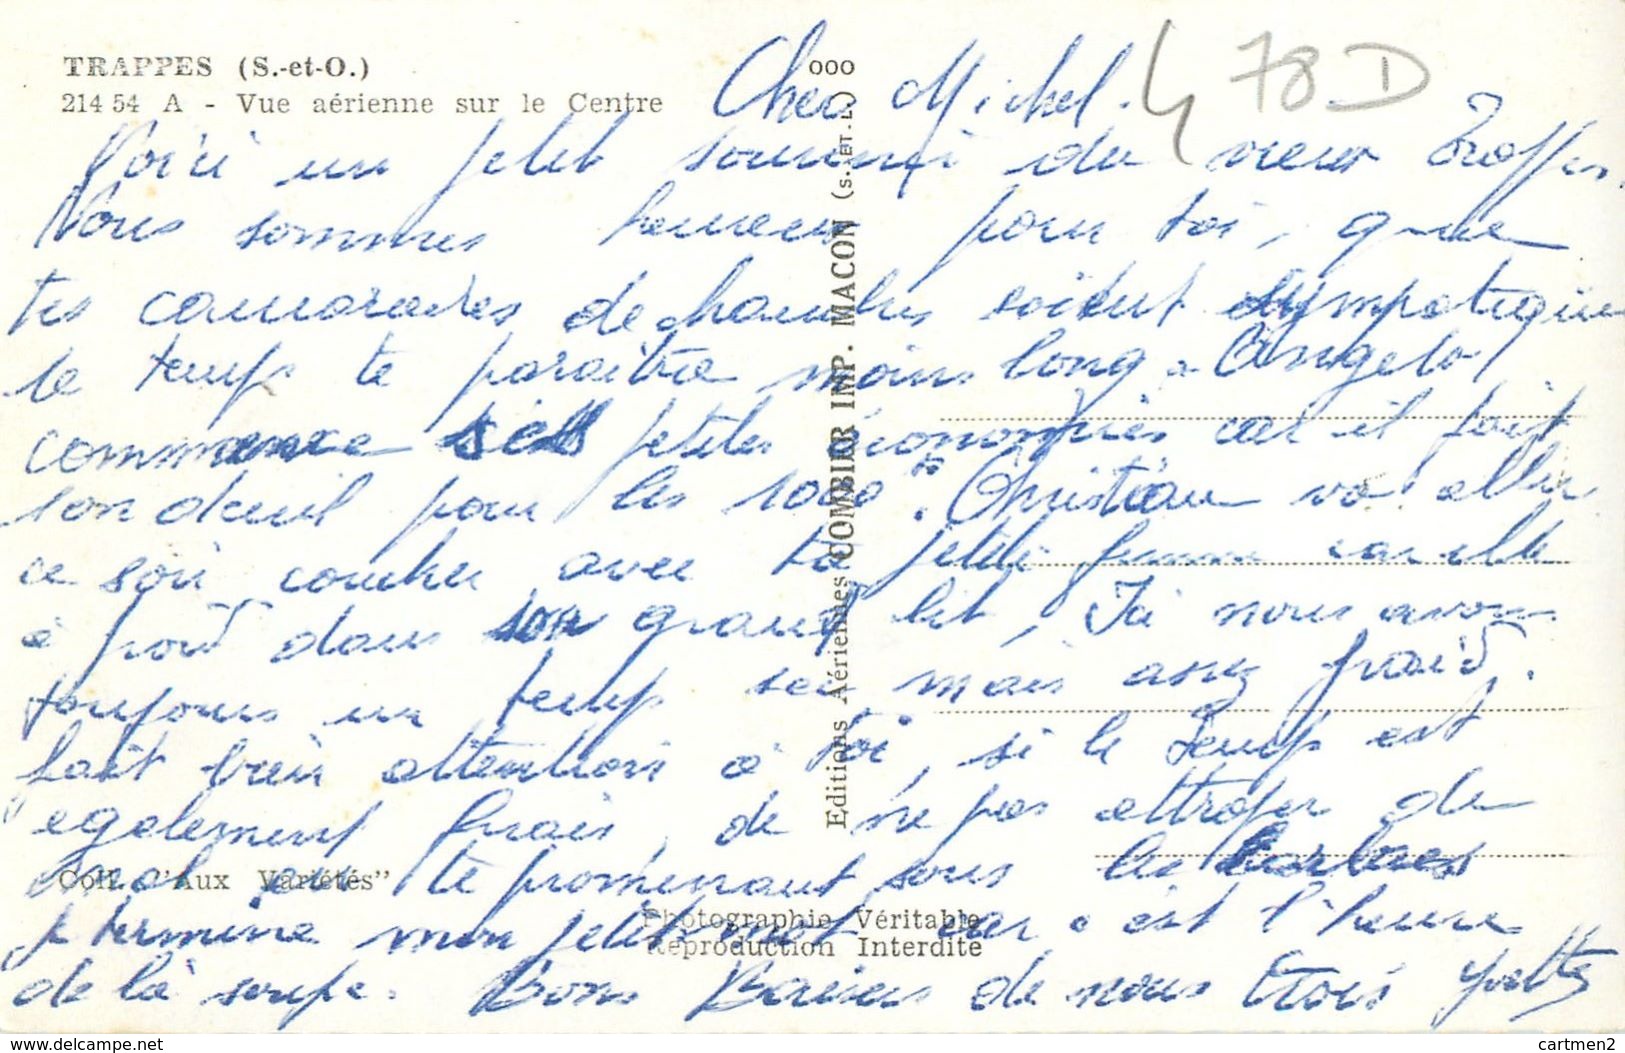 TRAPPES (S.-et-O.)
214 54 A - Vue aérienne sur le Centre
78 D
Cher Michel.
Voici un petit souvenir du vieux Trappes.
Nous sommes heureux pour toi, que
tes camarades de chambre soient sympatique
le temps te paraitra moins long. Angelo
commence ses petites économies car il fait
son deuil pour les 1000. Christian va aller
ce soir coucher avec ta petite femme car elle
à froid dans son grand lit, Ici nous avons
toujours un temps sec mais assez froid.
fait bien attention à toi, si le temps est
egalement frais, de ne pas attraper du
mal en te promenant sous les arbres
je termine mon petit mot car c'est l'heure
de la soupe. Bons Baisers de nous trois Yvette
Coll. "Aux Variétés"
Photographie Véritable
Reproduction Interdite
Editions Aériennes COMBIER IMP. MACON (S. ET. L.) 000
https://www.delcampe.net
cartmen2